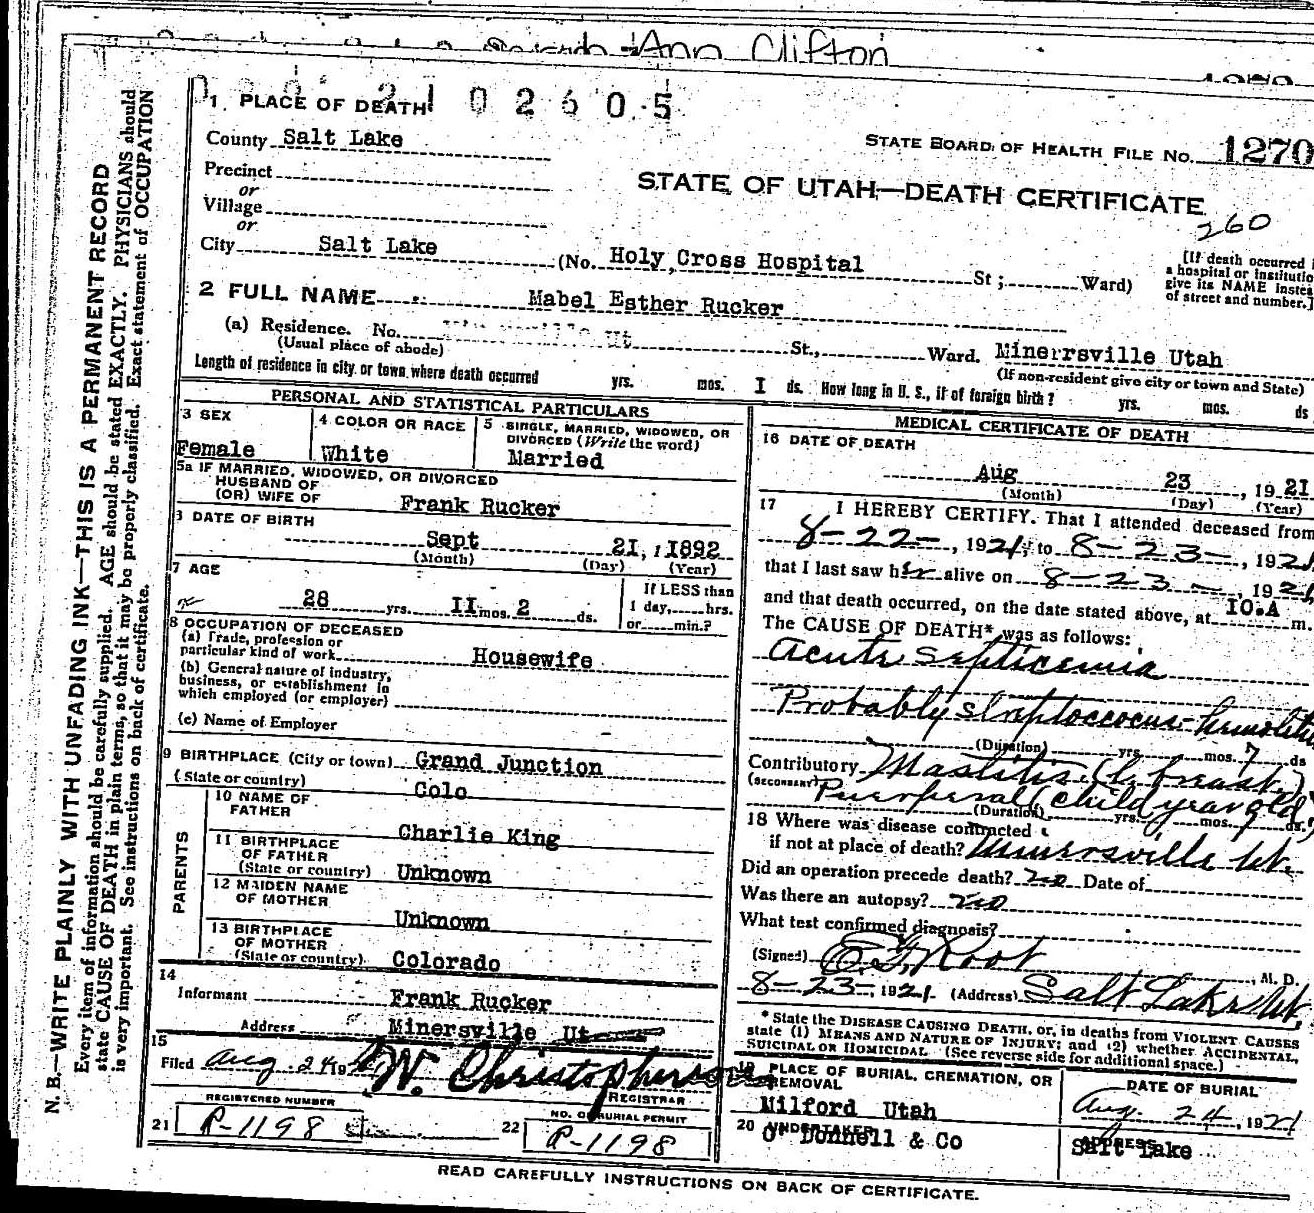 Sarah Ann Clifton
2102605
1. PLACE OF DEATH
County Salt Lake
STATE BOARD OF HEALTH FILE NO. 1270
Precinct
or
STATE OF UTAH—DEATH CERTIFICATE
Village
or
260
City Salt Lake (No. Holy Cross Hospital St; Ward)
[If death occurred
a hospital or institutio
give its NAME instea
of street and number.]
2 FULL NAME Mabel Esther Rucker
(a) Residence. No. Ut St., Ward. Minerrsville Utah
(Usual place of abode) (If non-resident give city or town and State)
Length of residence in city or town where death occurred yrs. mos. I ds. How long in U. S., if of foreign birth? yrs. mos. ds
PERSONAL AND STATISTICAL PARTICULARS
3 SEX
Female
4 COLOR OR RACE
White
5 SINGLE, MARRIED, WIDOWED, OR
DIVORCED (Write the word)
Married
5a IF MARRIED, WIDOWED, OR DIVORCED
HUSBAND OF
(OR) WIFE OF Frank Rucker
DATE OF BIRTH
Sept 21, 1892
(Month) (Day) (Year)
7 AGE
28 yrs. II mos. 2 ds.
If LESS than
1 day, hrs.
or min.?
8 OCCUPATION OF DECEASED
(a) Trade, profession or
particular kind of work Housewife
(b) General nature of industry,
business, or establishment in
which employed (or employer)
(c) Name of Employer
9 BIRTHPLACE (City or town) Grand Junction
(State or country) Colo
PARENTS
10 NAME OF
FATHER Charlie King
11 BIRTHPLACE
OF FATHER
(State or country) Unknown
12 MAIDEN NAME
OF MOTHER
Unknown
13 BIRTHPLACE
OF MOTHER
(State or country) Colorado
14
Informant Frank Rucker
Address Minersville Ut
15
Filed Aug. 24 19 W. Christopherson
REGISTRAR
REGISTERED NUMBER
21 P-1198
NO. OF BURIAL PERMIT
22 P-1198
MEDICAL CERTIFICATE OF DEATH
16 DATE OF DEATH
Aug 23, 1921
(Month) (Day) (Year)
17 I HEREBY CERTIFY. That I attended deceased from
8-22-, 1921, to 8-23-, 1921
that I last saw her alive on 8-23-, 1921
and that death occurred, on the date stated above, at IO.A m.
The CAUSE OF DEATH* was as follows:
Acute septicemia
Probably streptoccocus-
(Duration) yrs. mos. 7 ds
Contributory Mastitis (L. breast.)
(SECONDARY) Puerperal (Child year old)
(Duration) yrs. mos. ds.
18 Where was disease contracted
if not at place of death? Minersville Ut.
Did an operation precede death? no Date of
Was there an autopsy? no
What test confirmed diagnosis?
(Signed) E. F. Root, M. D.
8-23-, 1921. (Address) Salt Lake Ut.
* State the DISEASE CAUSING DEATH, or, in deaths from VIOLENT CAUSES
state (1) MEANS AND NATURE OF INJURY; and (2) whether ACCIDENTAL,
SUICIDAL OR HOMICIDAL (See reverse side for additional space.)
19 PLACE OF BURIAL, CREMATION, OR
REMOVAL
Milford Utah
DATE OF BURIAL
Aug. 24, 1921
20 UNDERTAKER
O' Donnell & Co
ADDRESS
Salt Lake
READ CAREFULLY INSTRUCTIONS ON BACK OF CERTIFICATE.
N. B.—WRITE PLAINLY WITH UNFADING INK—THIS IS A PERMANENT RECORD
Every item of information should be carefully supplied. AGE should be stated EXACTLY. PHYSICIANS should
state CAUSE OF DEATH in plain terms, so that it may be properly classified. Exact statement of OCCUPATION
is very important. See instructions on back of certificate.